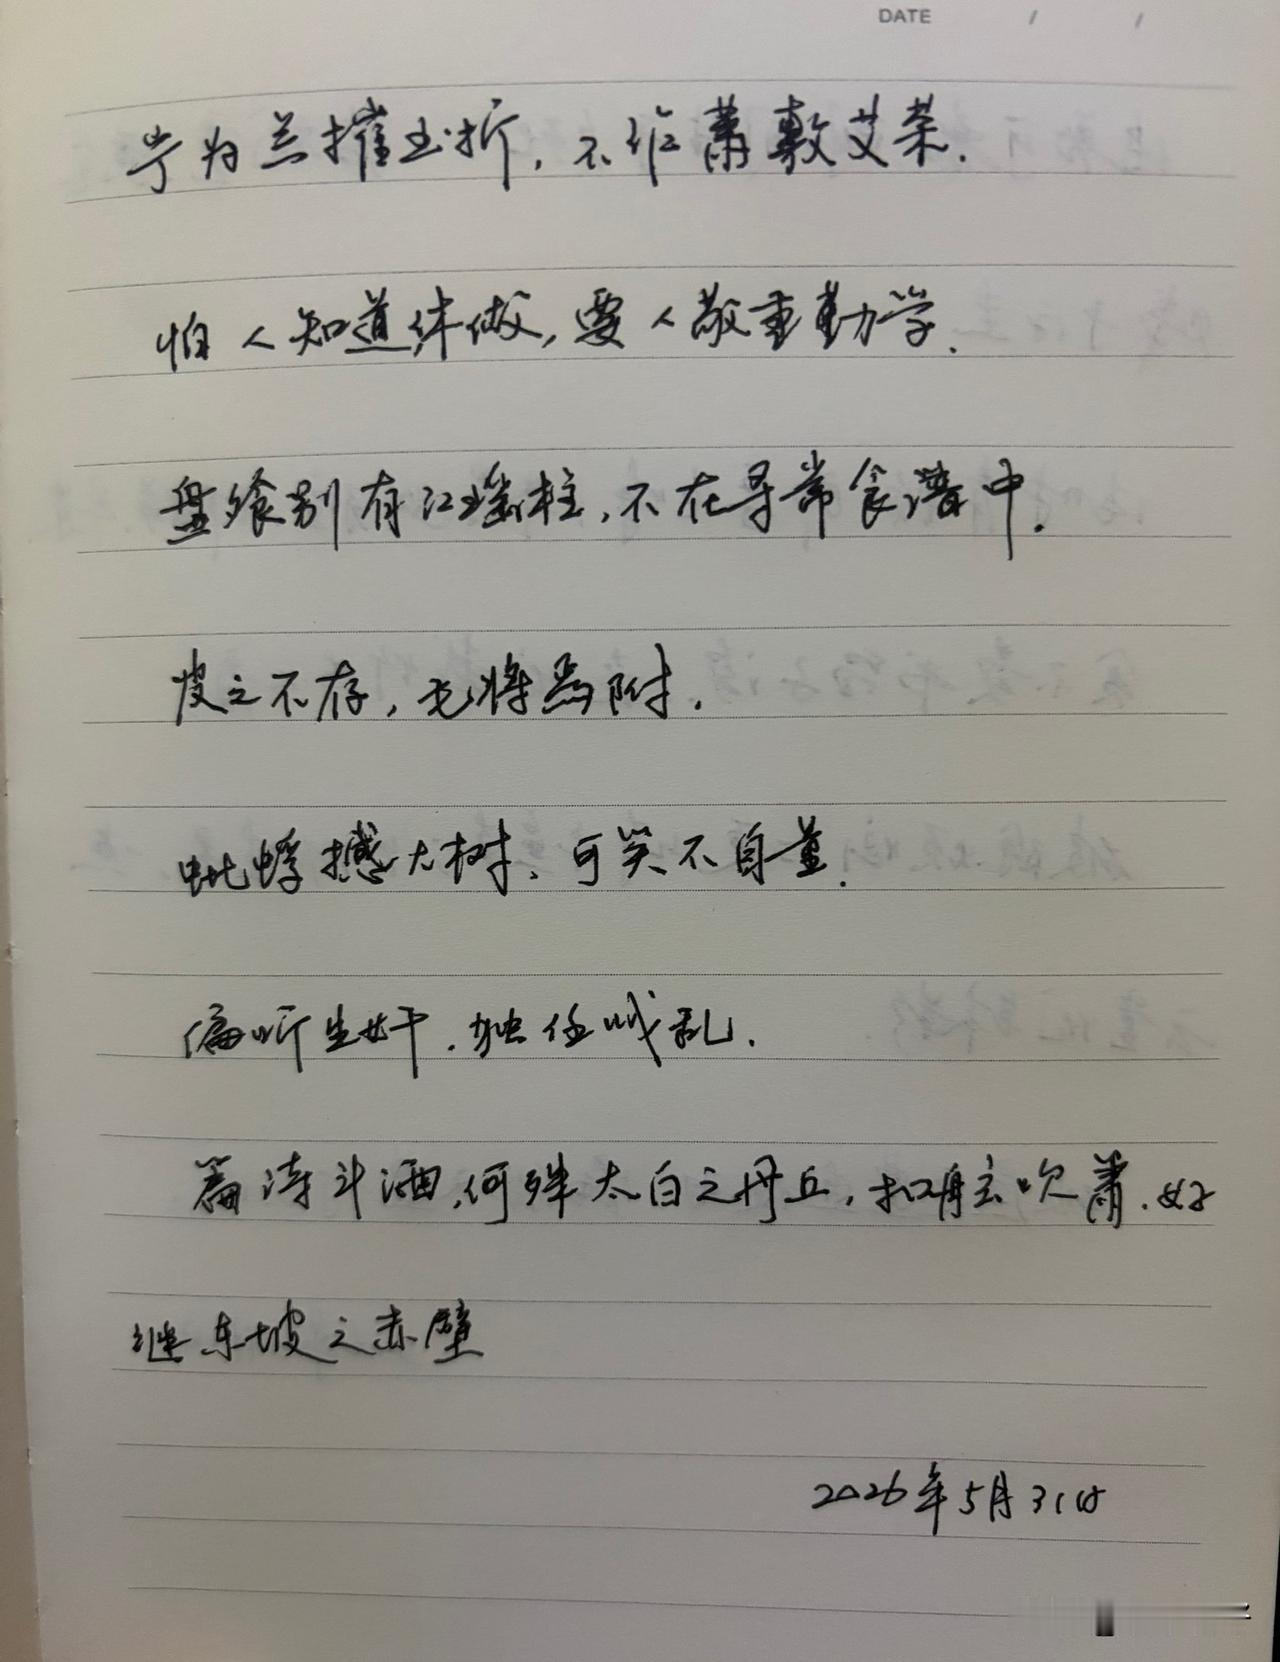 DATE / /
宁为兰摧玉折,不作萧敷艾荣.
怕人知道休做,要人敬重勤学.
盘飧别有江瑶柱,不在寻常食谱中.
皮之不存,毛将焉附.
蚍蜉撼大树,可笑不自量.
偏听生奸.独任成乱.
篇诗斗酒,何殊太白之丹丘,扣舷吹萧.好
继东坡之赤壁
2026年5月31日